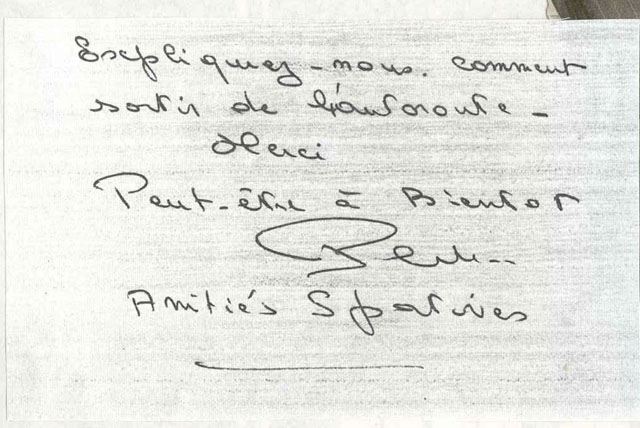 Expliquez-nous. comment
sortir de l'autoroute -
Merci
Peut-être à Bientot
Amitiés Sportives